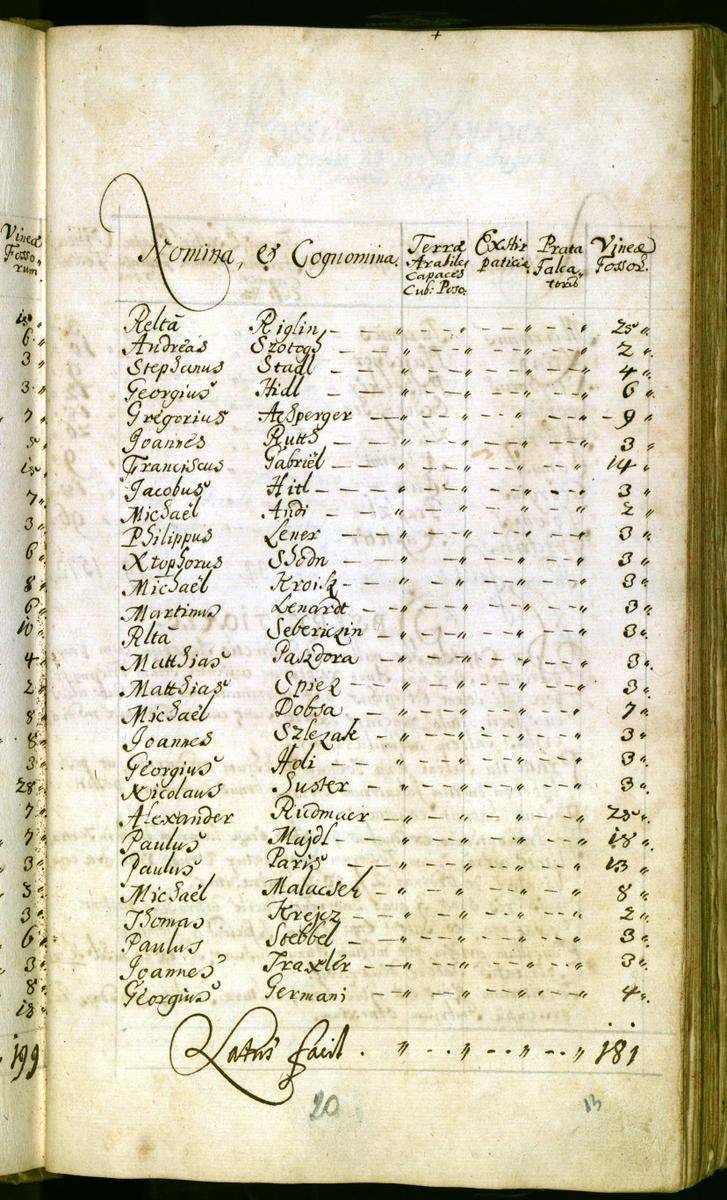 Vineæ
Fosso-
rum.
Nomina, et Cognomina.
Terræ
Arabiles
Capaces
Cub: Poso.
Exstir
paticiæ
Prata
Falca-
toris
Vineæ
Fossor.
Relta Riglin — — " — — " — — " — — " 25 "
Andreas Szotogh — — " — — " — — " — — " 2 "
Stephanus Stadl — — " — — " — — " — — " 4 "
Georgius Hidl — — " — — " — — " — — " 6 "
Gregorius Aesperger — — " — — " — — " — — " 9 "
Joannes Rutth — — " — — " — — " — — " 3 "
Franciscus Gabriel — — " — — " — — " — — " 14 "
Jacobus Hitl — — " — — " — — " — — " 3 "
Michaël Andi — — " — — " — — " — — " 2 "
Philippus Lener — — " — — " — — " — — " 3 "
Xtophorus Shodn — — " — — " — — " — — " 3 "
Michaël Kroisz — — " — — " — — " — — " 3 "
Martinus Lenardt — — " — — " — — " — — " 3 "
Rlta Sebericzin — — " — — " — — " — — " 3 "
Matthias Paszdora — — " — — " — — " — — " 3 "
Matthias Spiel — — " — — " — — " — — " 3 "
Michaël Dobsa — — " — — " — — " — — " 7 "
Joannes Szlezak — — " — — " — — " — — " 3 "
Georgius Holi — — " — — " — — " — — " 3 "
Nicolaus Suster — — " — — " — — " — — " 3 "
Alexander Riedmaer — — " — — " — — " — — " 25 "
Paulus Majdl — — " — — " — — " — — " 18 "
Paulus Paris — — " — — " — — " — — " 13 "
Michaël Malacseh — — " — — " — — " — — " 8 "
Thomas Krejcz — — " — — " — — " — — " 2 "
Paulus Stebbel — — " — — " — — " — — " 3 "
Joannes Traxler — — " — — " — — " — — " 3 "
Georgius Germani — — " — — " — — " — — " 4 "
Latus facit . " . . " . . " . . " 181
199
20
13